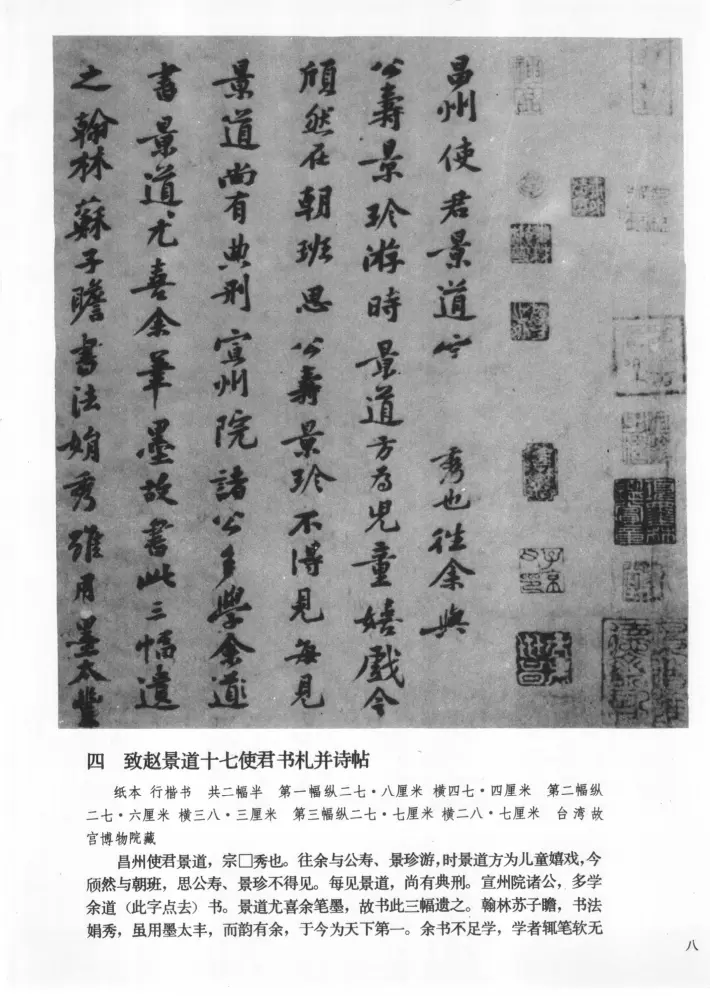 昌州使君景道宗 秀也往余與
公壽景珍游時景道方为兒童嬉戲今
頎然在朝班思公壽景珍不得見每見
景道尚有典刑宣州院諸公多學余道
書景道尤喜余筆墨故書此三幅遺
之翰林蘇子瞻書法娟秀雖用墨太豐
四 致赵景道十七使君书札并诗帖
纸本 行楷书 共二幅半 第一幅纵二七·八厘米 横四七·四厘米 第二幅纵
二七·六厘米 横三八·三厘米 第三幅纵二七·七厘米 横二八·七厘米 台湾故
宫博物院藏
昌州使君景道，宗□秀也。往余与公寿、景珍游，时景道方为儿童嬉戏，今
颀然与朝班，思公寿、景珍不得见。每见景道，尚有典刑。宣州院诸公，多学
余道（此字点去）书。景道尤喜余笔墨，故书此三幅遗之。翰林苏子瞻，书法
娟秀，虽用墨太丰，而韵有余，于今为天下第一。余书不足学，学者辄笔软无
八